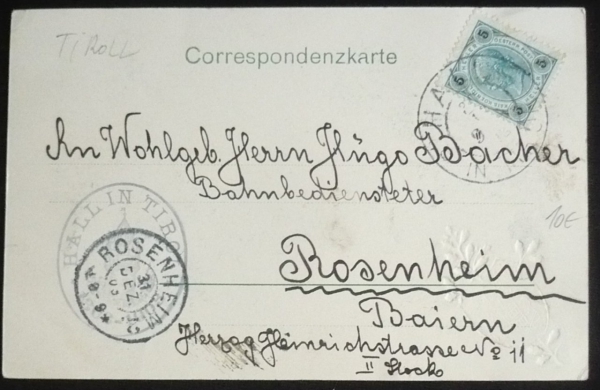 TIROLL
Correspondenzkarte
5 5
5 5
An Wohlgeb. Herrn Hugo Bacher
Bahnbediensteter
10€
HALL IN TIROL
ROSENHEIM
31
DEZ
Rosenheim
Baiern
Herzog Heinrichstrasse No 11
II Stock